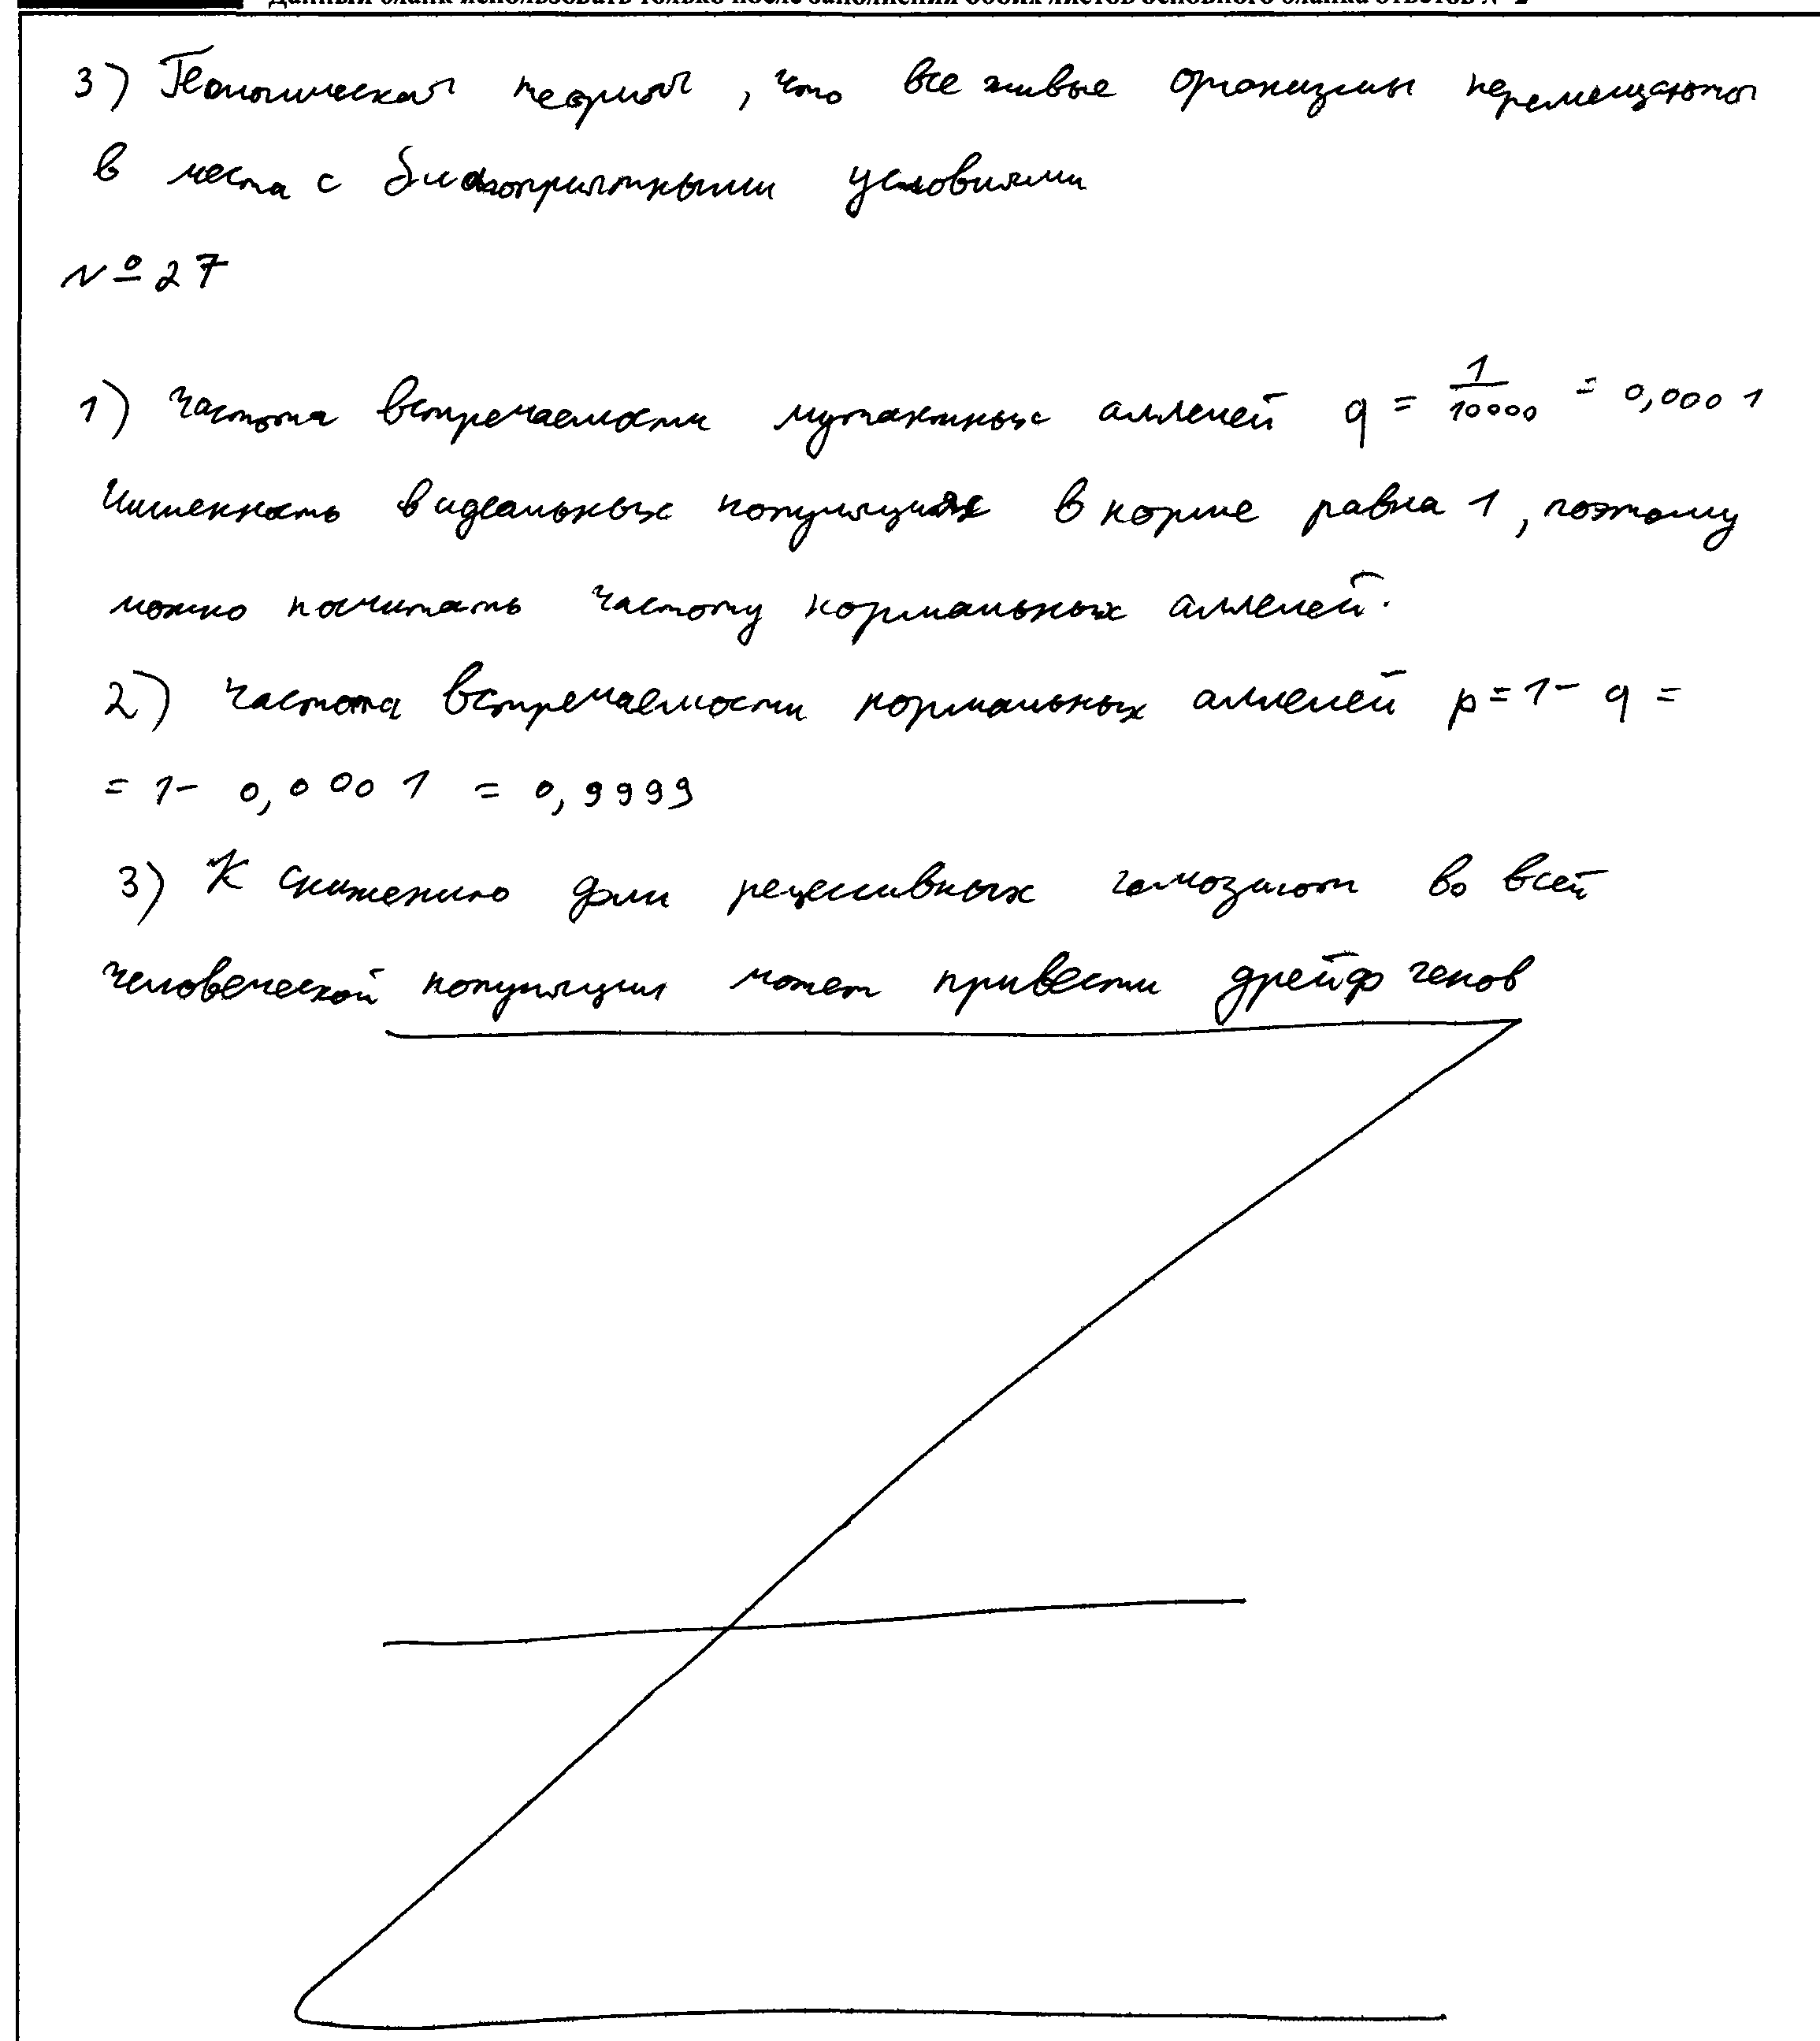 Данный бланк использовать только после заполнения обоих листов основного бланка ответов № 2
3) Геологическая теория, что все живые организмы перемещаются
в места с благоприятными условиями
№ 27
1) Частота встречаемости мутантных аллелей q = 1/10000 = 0,0001
Численность в идеальных популяциях в норме равна 1, поэтому
можно посчитать частоту нормальных аллелей.
2) Частота встречаемости нормальных аллелей p = 1 - q =
= 1 - 0,0001 = 0,9999
3) К снижению доли рецессивных гомозигот во всей
человеческой популяции может привести дрейф генов